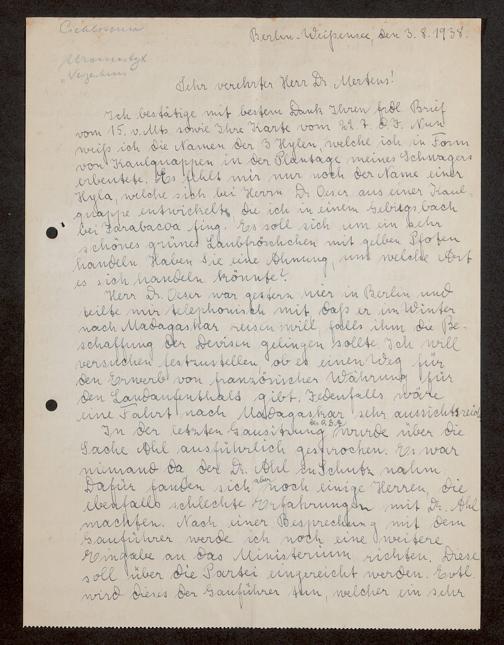 Cichlosoma
Uromastyx
Berlin-Weißensee, den 3.8.1938.
Sehr verehrter Herr Dr. Mertens!
Ich bestätige mit bestem Dank Ihren frdl. Brief
vom 15. v. Mts sowie Ihre Karte vom 22.7. d.J. Nun
weiß ich die Namen der 3 Hylen, welche ich in Form
von Kaulquappen in der Plantage meines Schwagers
erbeutete. Es fehlt mir nur noch der Name einer
Hyla, welche sich bei Herrn Dr. Oeser aus einer Kaul-
quappe entwickelte, die ich in einem Gebirgsbach
bei Jarabacoa fing. Es soll sich um ein sehr
schönes grünes Laubfröschchen mit gelben Pfoten
handeln. Haben Sie eine Ahnung, um welche Art
es sich handeln könnte?
Herr Dr. Oeser war gestern hier in Berlin und
teilte mir telephonisch mit, daß er im Winter
nach Madagaskar reisen will, falls ihm die Be-
schaffung der Devisen gelingen sollte. Ich will
versuchen festzustellen, ob es einen Weg für
den Erwerb von französischer Währung für
den Landaufenthalt gibt. Jedenfalls wäre
eine Fahrt nach Madagaskar sehr aussichtsreich.
In der letzten Gausitzung wurde über die
Sache Ahl ausführlich gesprochen. Es war
niemand da, der Dr. Ahl in Schutz nahm.
Dafür fanden sich aber noch einige Herren, die
ebenfalls schlechte Erfahrungen mit Dr. Ahl
machten. Nach einer Besprechung mit dem
Gauführer werde ich noch eine weitere
Eingabe an das Ministerium richten. Diese
soll über die Partei eingereicht werden. Evtl.
wird dieses der Gauführer tun, welcher ein sehr